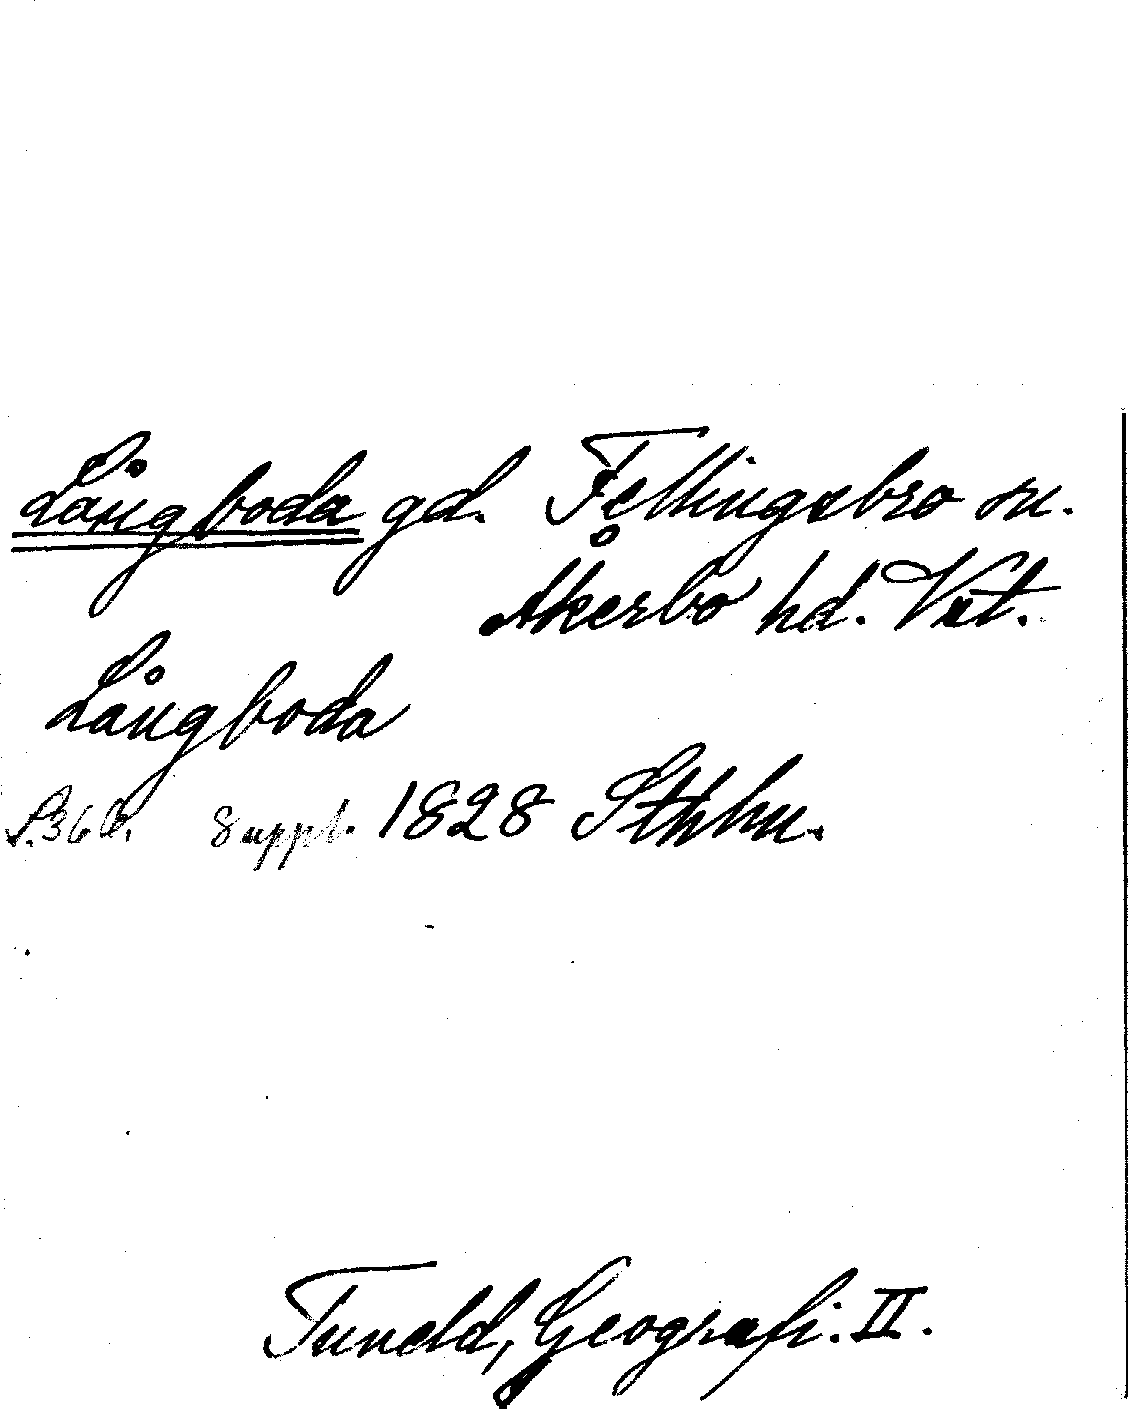 Långboda gd. Fellingsbro sn.
Åkerbo hd. Vstm.
Långboda
S. 362. Suppl. 1828 Sthlm.
Tuneld, Geografi. II.